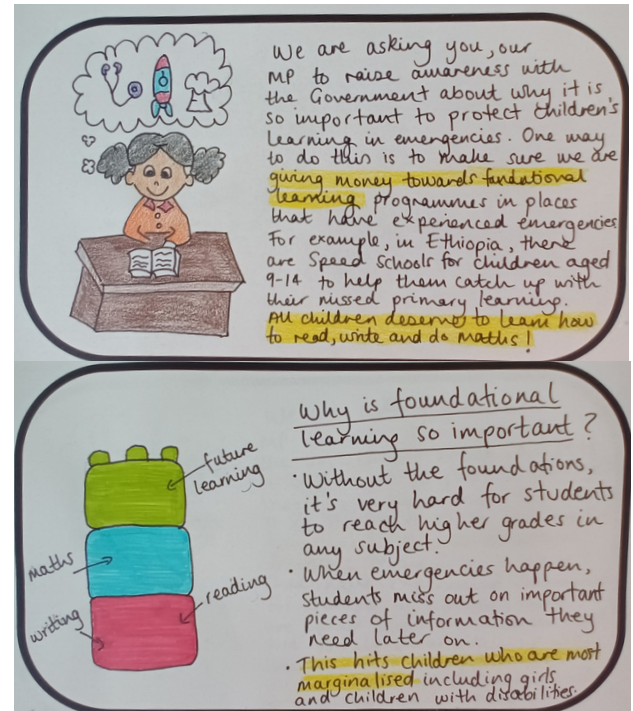 We are asking you, our
MP to raise awareness with
the Government about why it is
so important to protect children's
learning in emergencies. One way
to do this is to make sure we are
giving money towards foundational
learning programmes in places
that have experienced emergencies
For example, in Ethiopia, there
are Speed Schools for children aged
9-14 to help them catch up with
their missed primary learning.
All children deserve to learn how
to read, write and do maths!
Why is foundational
learning so important?
future
learning
maths
reading
writing
· Without the foundations,
it's very hard for students
to reach higher grades in
any subject.
· When emergencies happen,
students miss out on important
pieces of information they
need later on.
· This hits children who are most
marginalised including girls
and children with disabilities.